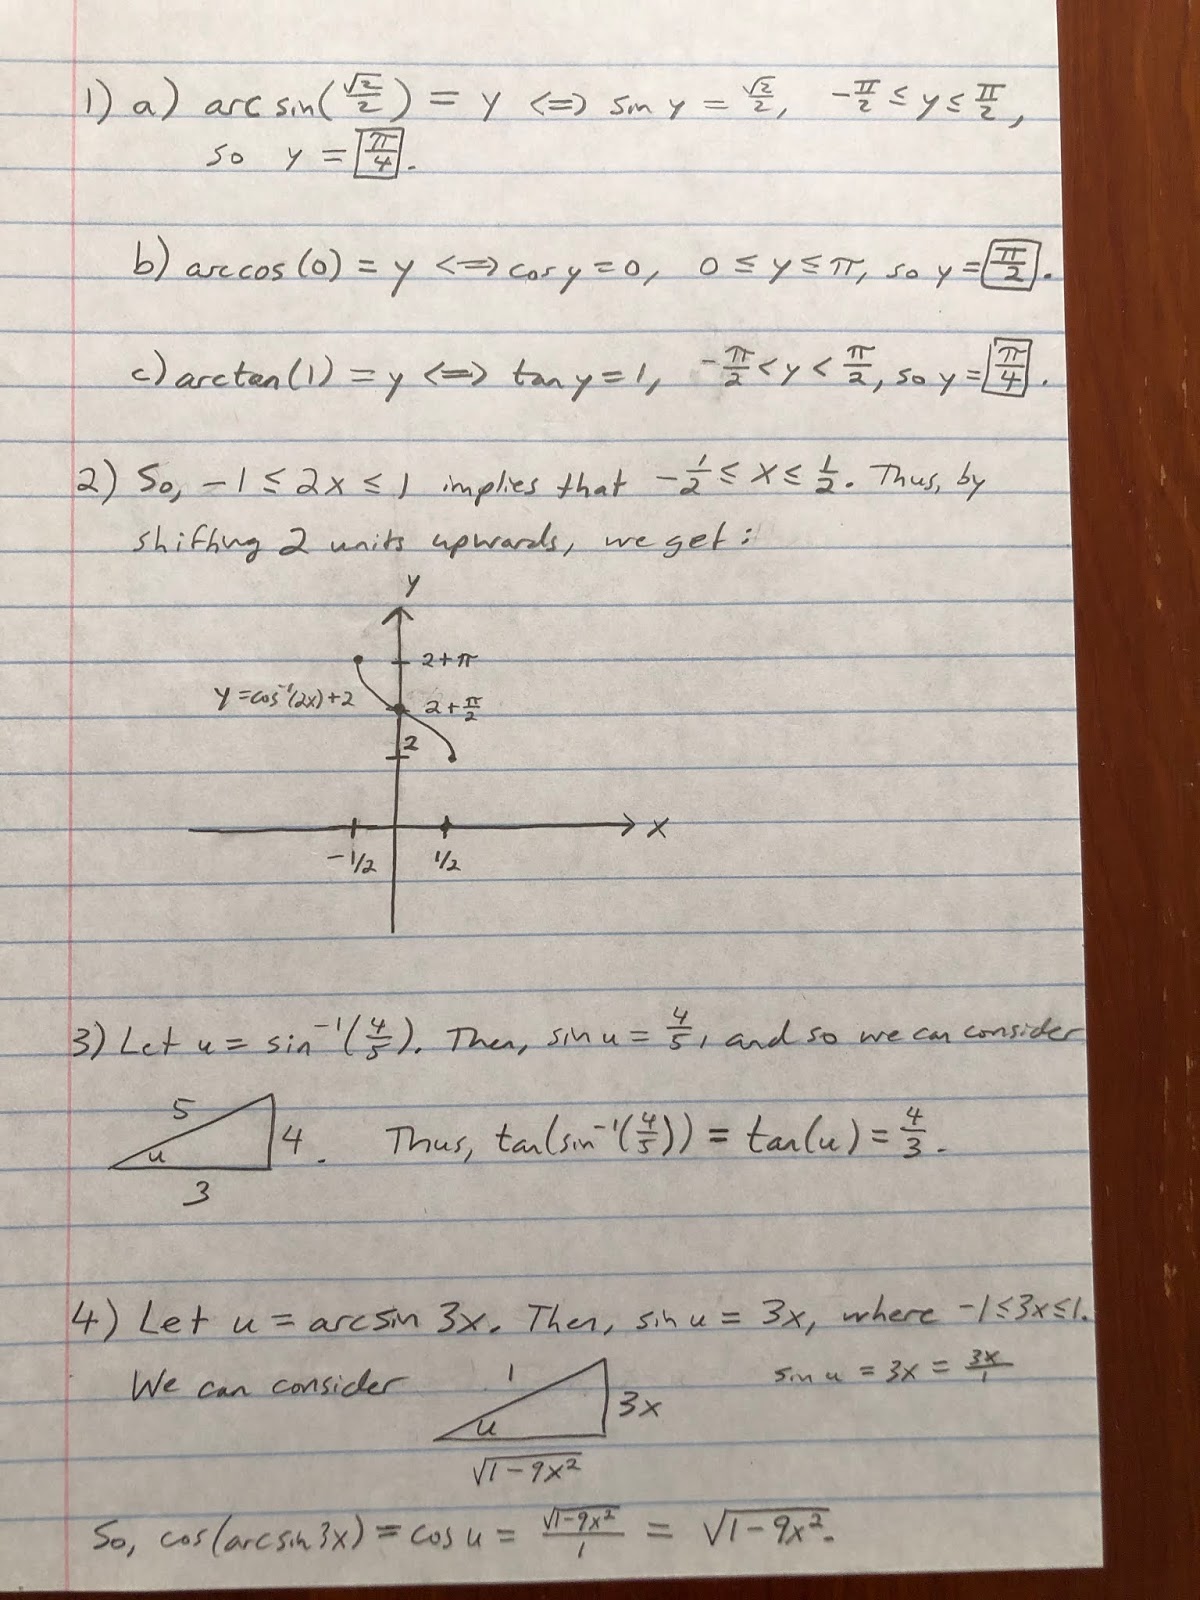 1) a) arcsin(√2/2) = y <=> sin y = √2/2, -π/2 ≤ y ≤ π/2,
so y = π/4.
b) arccos(0) = y <=> cos y = 0, 0 ≤ y ≤ π, so y = π/2.
c) arctan(1) = y <=> tan y = 1, -π/2 < y < π/2, so y = π/4.
2) So, -1 ≤ 2x ≤ 1 implies that -1/2 ≤ x ≤ 1/2. Thus, by
shifting 2 units upwards, we get:
y
2+π
y=cos⁻¹(2x)+2
2+π/2
2
x
-1/2 1/2
3) Let u = sin⁻¹(4/5). Then, sin u = 4/5, and so we can consider
5
u 4. Thus, tan(sin⁻¹(4/5)) = tan(u) = 4/3.
3
4) Let u = arcsin 3x. Then, sin u = 3x, where -1≤3x≤1.
We can consider 1 sin u = 3x = 3x/1
u 3x
√(1-9x²)
So, cos(arcsin 3x) = cos u = √(1-9x²)/1 = √(1-9x²).